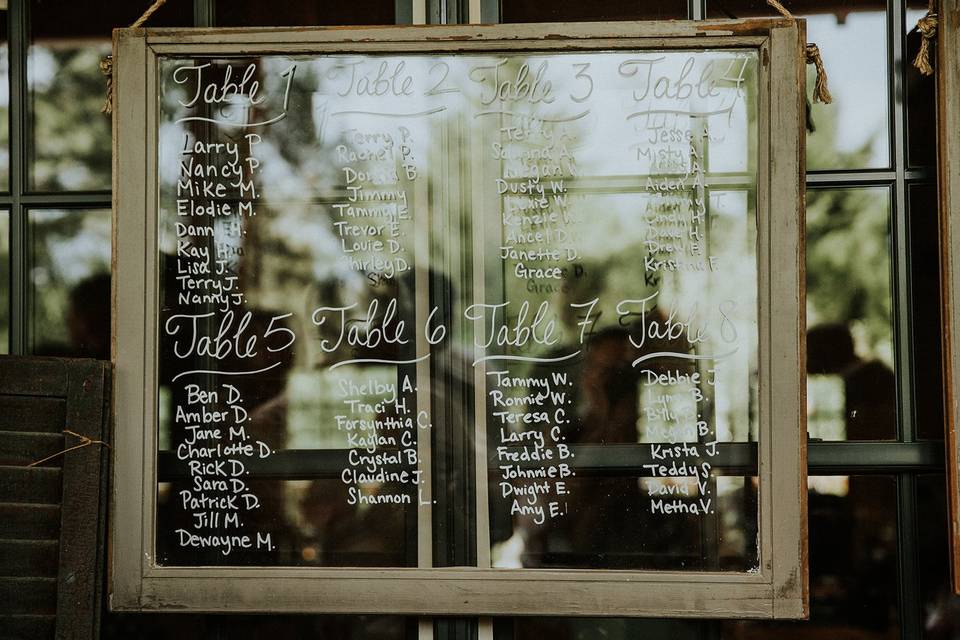 Table 1
Larry P
Nancy P
Mike M.
Elodie M.
Dann H.
Kay H.
Lisa J.
Terry J.
Nanny J.
Table 2
Terry P.
Rachel P.
Donna B
Jimmy
Tammy E.
Trevor E.
Louie D.
Shirley D.
Table 3
Megan W.
Dusty W.
Kenzie W.
Ancel D.
Janette D.
Grace D.
Table 4
Jesse A.
Misty A.
Aiden A.
Cindy H.
David H.
Drew F.
Kristina F.
Table 5
Ben D.
Amber D.
Jane M.
Charlotte D.
Rick D.
Sara D.
Patrick D.
Jill M.
Dewayne M.
Table 6
Shelby A.
Traci H.
Forsynthia C.
Kaylan C.
Crystal B.
Claudine J.
Shannon L.
Table 7
Tammy W.
Ronnie W.
Teresa C.
Larry C.
Freddie B.
Johnnie B.
Dwight E.
Amy E.
Table 8
Debbie J.
Lynn B.
Billy B.
Megan B.
Krista J.
Teddy S.
David V.
Metha V.